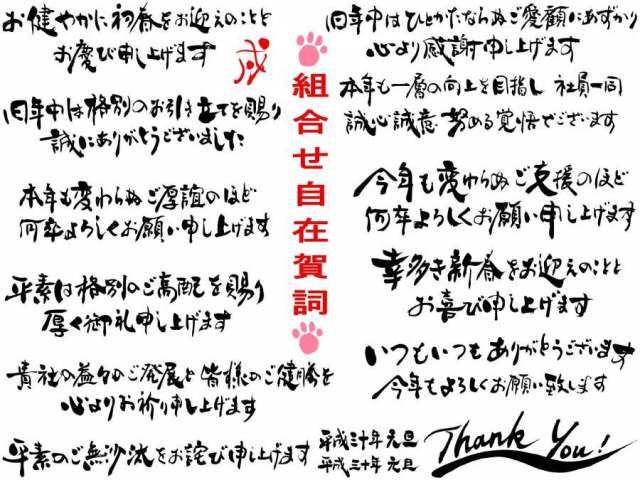 お健やかに初春をお迎えのことと
お慶び申し上げます
戌
旧年中は格別のお引き立てを賜り
誠にありがとうございました
本年も変わらぬご厚誼のほど
何卒よろしくお願い申し上げます
平素は格別のご高配を賜り
厚く御礼申し上げます
貴社の益々のご発展と皆様のご健勝を
心よりお祈り申し上げます
平素のご無沙汰をお詫び申し上げます
組合せ自在賀詞
旧年中はひとかたならぬご愛顧にあずかり
心より感謝申し上げます
本年も一層の向上を目指し 社員一同
誠心誠意 努める覚悟でございます
今年も変わらぬご支援のほど
何卒よろしくお願い申し上げます
幸多き新春をお迎えのことと
お喜び申し上げます
いつもいつもありがとうございます
今年もよろしくお願い致します
平成三十年 元旦
平成三十年 元旦
Thank You!